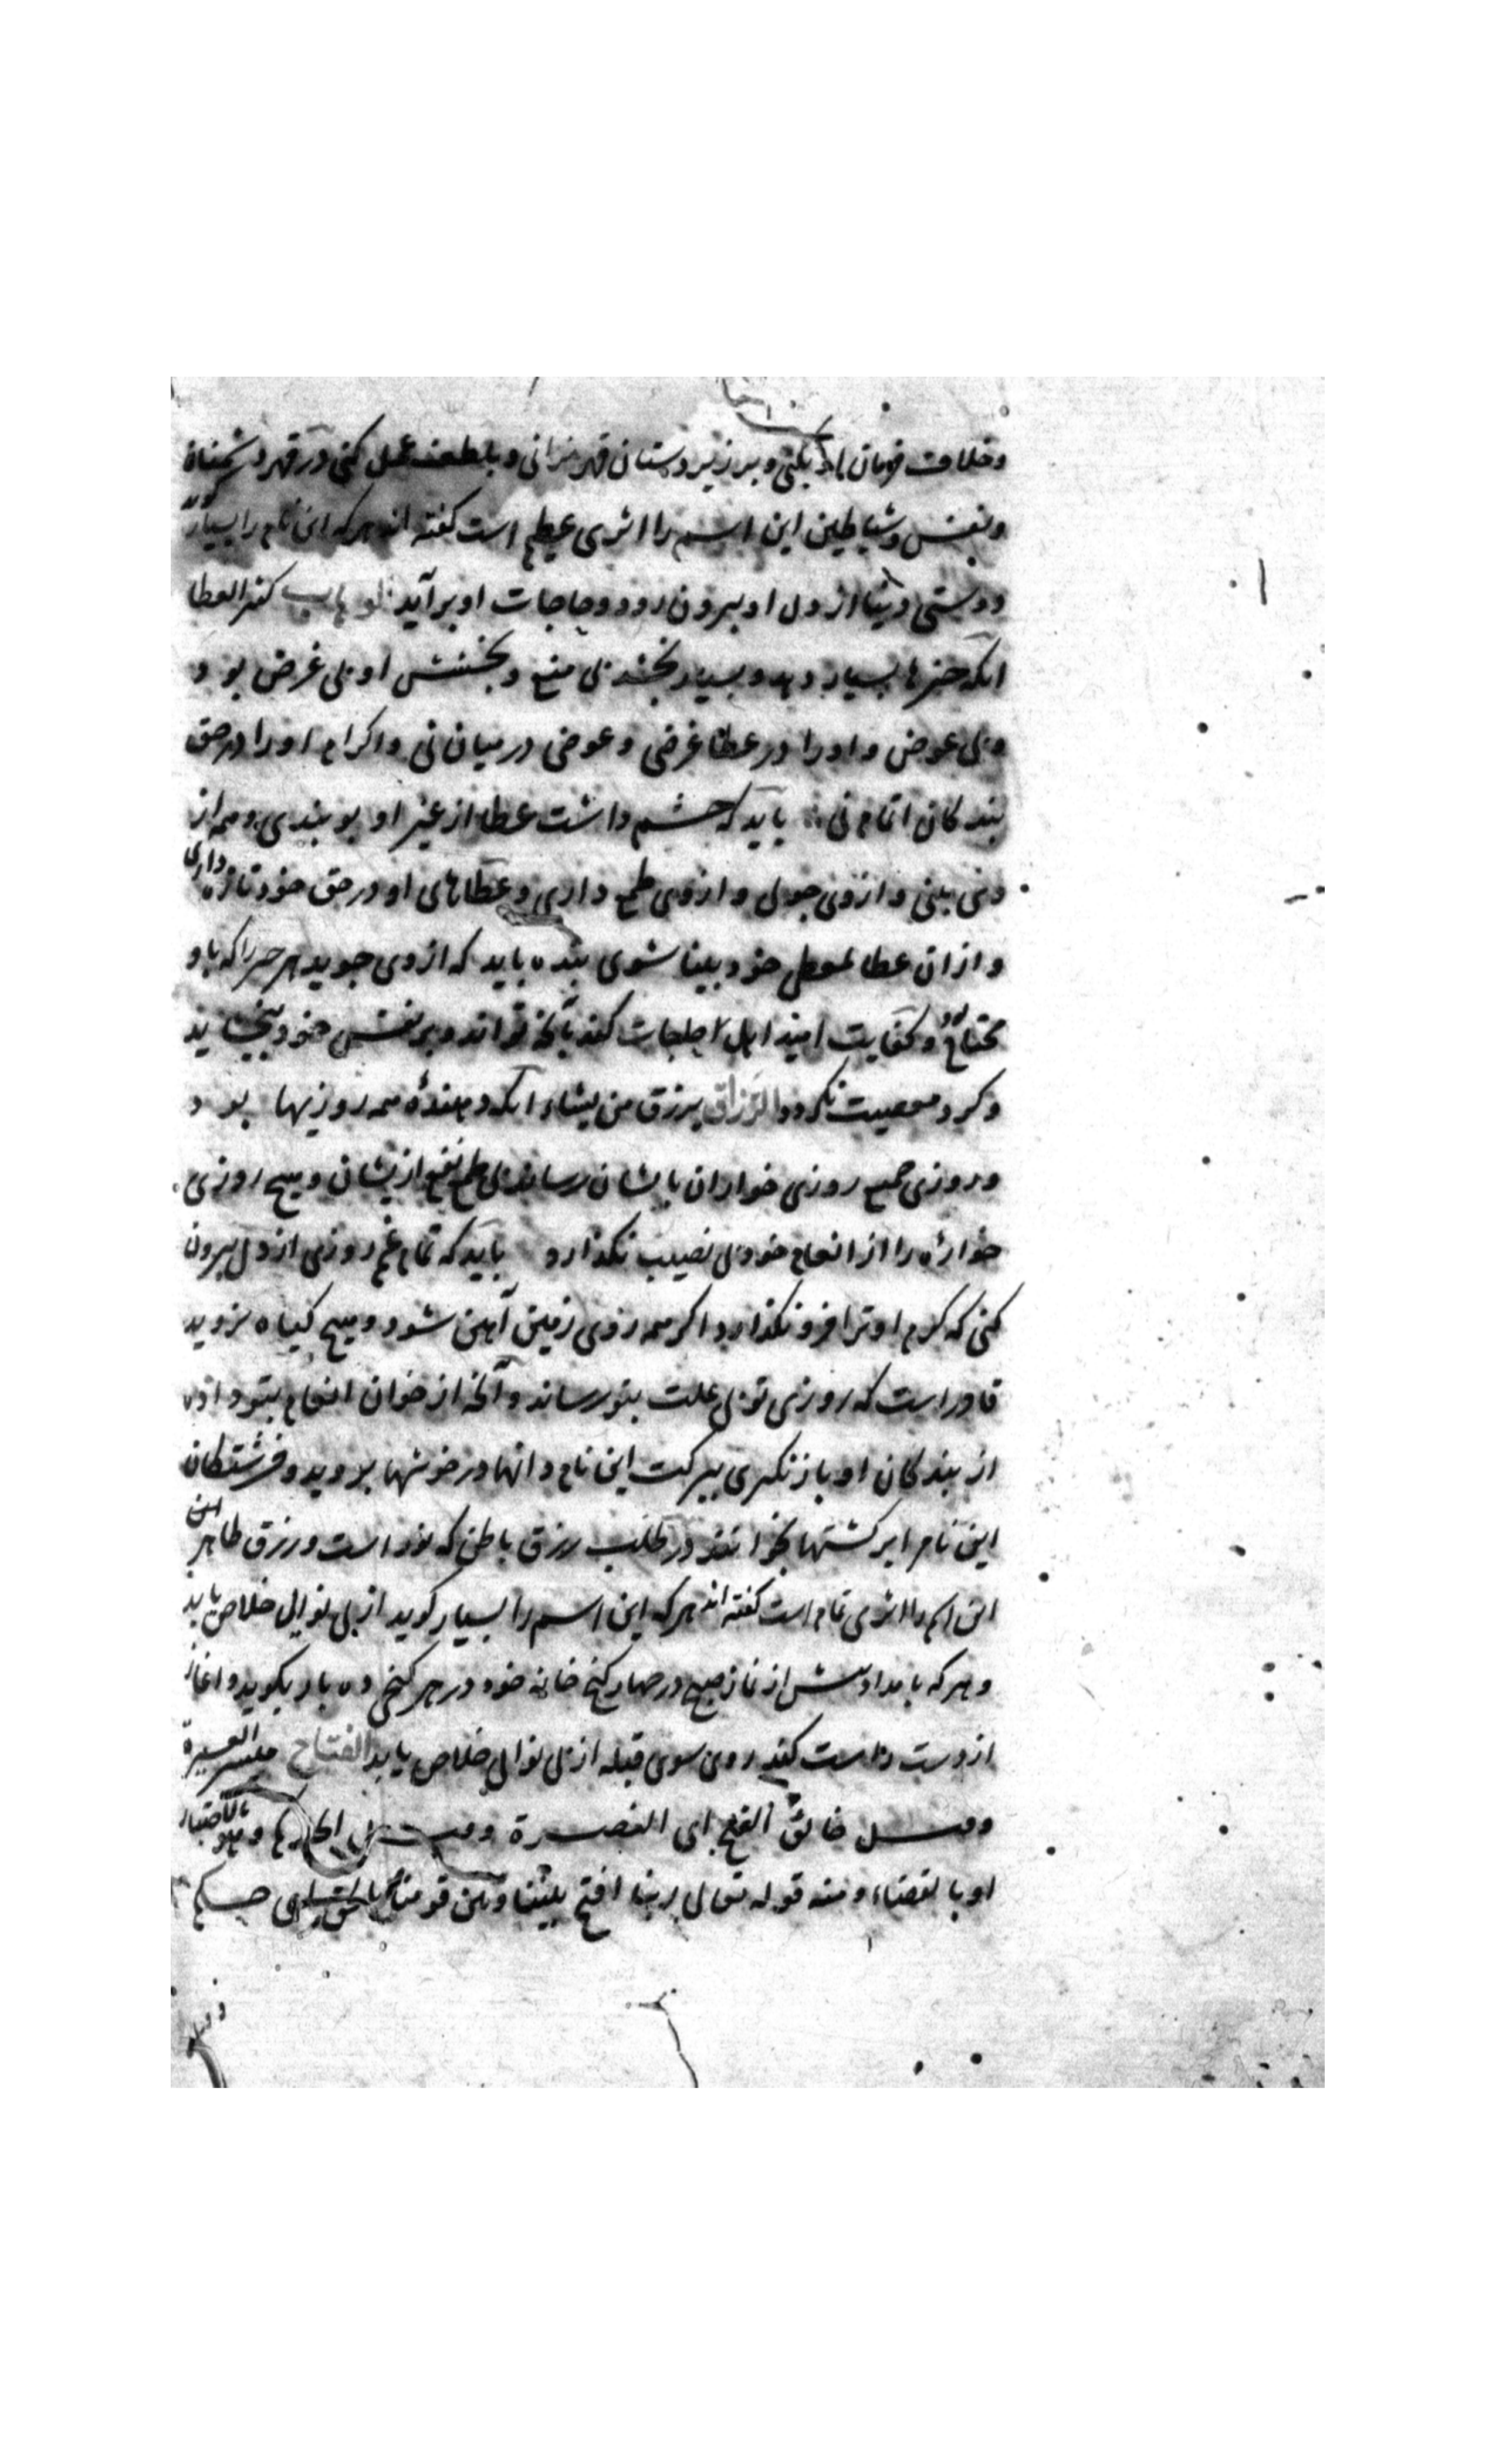 وخلاف فرمان او نکنی و بر زیر دستان قهر نرانی و بلطف عمل کنی و در قهر دشمنان
ونفس وشیاطین این اسم را اثری عظیم است گفته اند هرکه این نام را بسیار گوید
دوستی دنیا از دل او بیرون رود و حاجات او برآید الوهاب کثیر العطا
انکه چیزها بسیار دهد و بسیار بخشد بی منع و بخشش او بی غرض بود
و بی عوض و او را در عطا غرضی و عوضی در میان نی و اکرام او را در حق
بندکان اتمام نی باید که چشم داشت عطا از غیر او بو بندی و همه از
وی بینی و از وی جویی و از وی طمع داری و عطاهای او در حق خود تازه داری
و از ان عطا بمعطی خود بینا شوی بنده باید که از وی جوید هر چیز را که باو
محتاج بود و کفایت امید اهل حاجات کند بآنچه تواند و بر نفس خود ببخشاید
و کرد معصیت نکردد الرزاق یرزق من یشاء انکه دهندۀ همه روزیها بود
و روزی جمیع روزی خواران بایشان رساند بی طمع نفع از یشان و هیچ روزی
خواره را از انعام خود بی نصیب نکذارد باید که تمام غم روزی از دل بیرون
کنی که کرم او ترا فرو نکذارد اکر همه روی زمین آهن شود و هیچ کیاه نروید
قادر است که روزی تو بی علت بتو رساند و آنچه از خوان انعام بتو داده
از بندکان او باز نکیری ببرکت این نام دانها در خوشها بروید و فرشتکان
این نام را بر کشتها بخوانند در طلب رزق باطن که نور است و رزق ظاهر
این اسم را اثری تمام است گفته اند هرکه این اسم را بسیار کوید از بی نوایی خلاص یابد
و هرکه بامداد پیش از نماز صبح در چهار کنج خانه خود در هر کنجی ده بار بکوید و اغاز
از دست راست کند روی سوی قبله از بی نوایی خلاص یابد الفتاح میسر العسیرة
وقیل خالق الفتح ای النصرة وقیل الحاکم
او بالقضاء ومنه قوله تعالی ربنا افتح بیننا وبین قومنا بالحق ای احکم